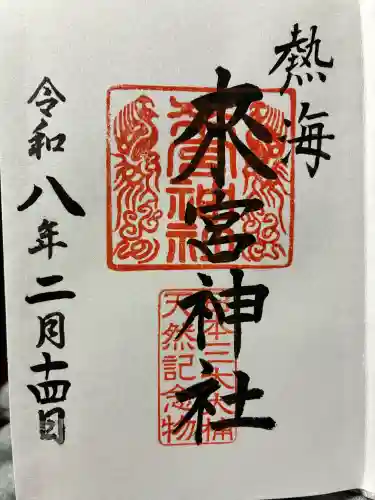 熱海
來宮神社
令和八年二月十四日
來宮神社
日本三大大楠
天然記念物